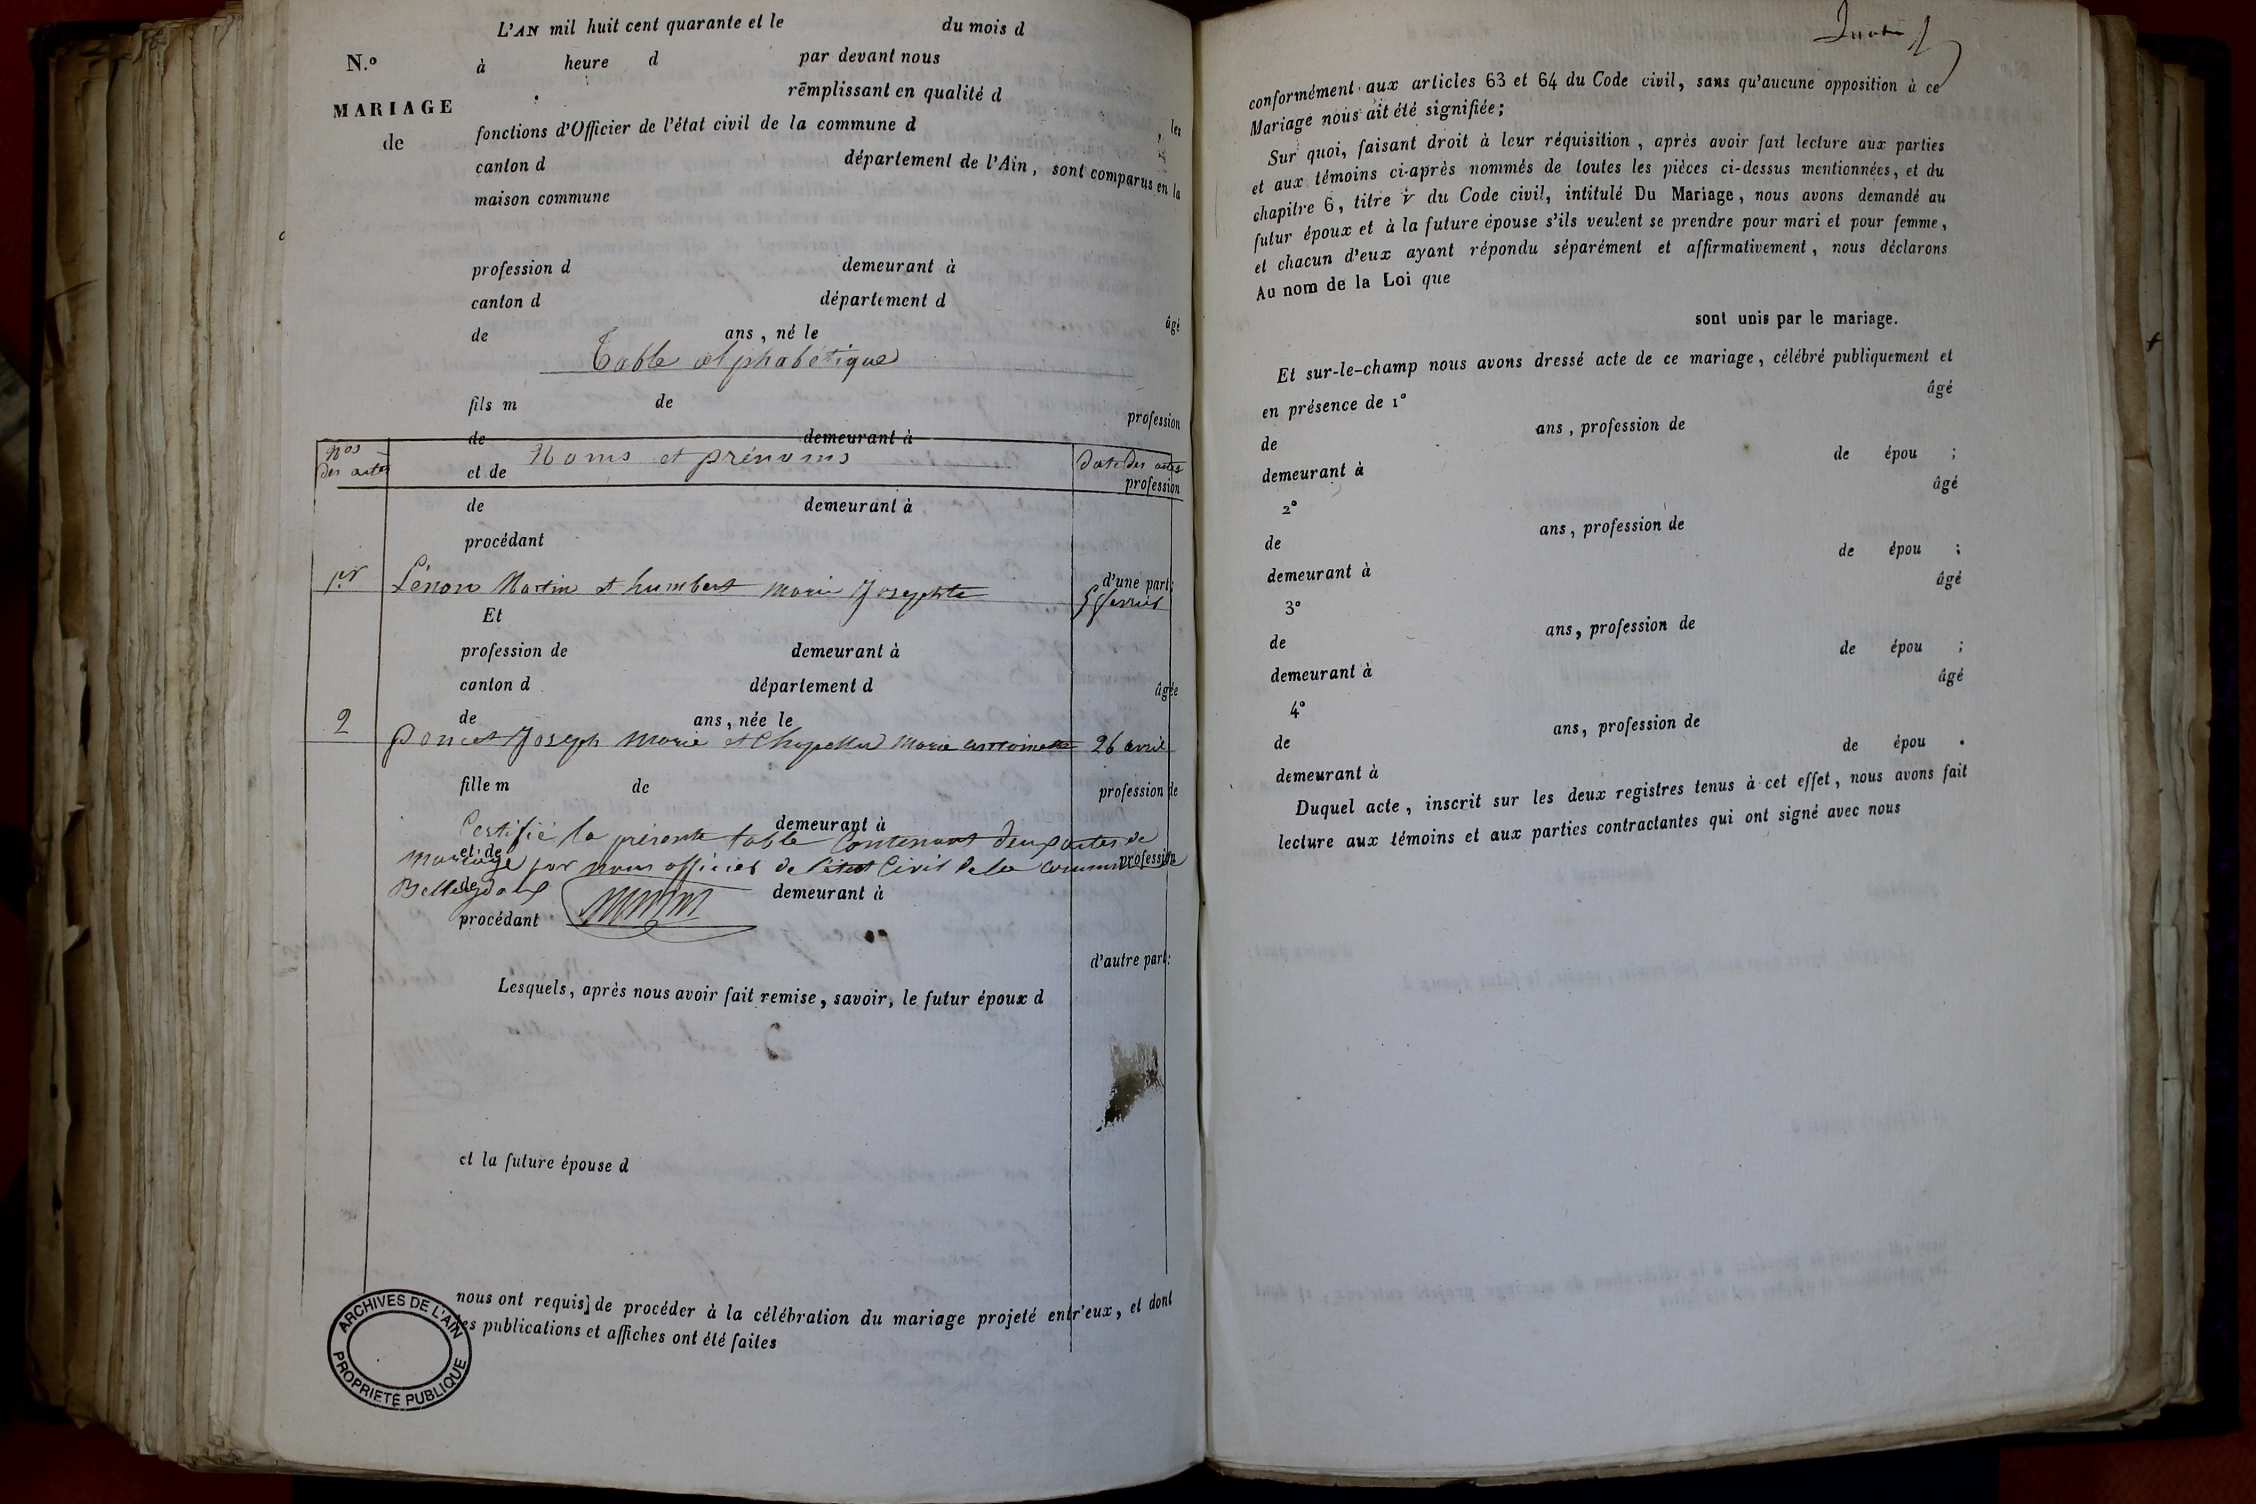 L'AN mil huit cent quarante et le du mois d
N.º à heure d par devant nous
remplissant en qualité d
MARIAGE
fonctions d'Officier de l'état civil de la commune d , les
de
canton d département de l'Ain, sont comparus en la
maison commune
profession d demeurant à
canton d département d
âgé
de ans, né le
Table alphabétique
fils m de
profession
de demeurant à
Nos des actes Noms et prénoms Date des actes
et de profession
de demeurant à
procédant
d'une part;
1er Lénon Martin et humbert Marie Josephte 5 fevrier
Et
profession de demeurant à
canton d département d âgée
de ans, née le
2 poncet Joseph Marie et Chapellu Marie antoinette 26 avril
fille m de profession de
demeurant à
Certifié la présente table Contenant deux actes de
et de profession
mariage par nous officier de l'état Civil de la commune de
de demeurant à
Belleydoux
procédant
d'autre part:
Lesquels, après nous avoir fait remise, savoir, le futur époux d
et la future épouse d
nous ont requis de procéder à la célébration du mariage projeté entr'eux, et dont
les publications et affiches ont été faites
ARCHIVES DE L'AIN
PROPRIETÉ PUBLIQUE
conformément aux articles 63 et 64 du Code civil, sans qu'aucune opposition à ce
Mariage nous ait été signifiée;
Sur quoi, faisant droit à leur réquisition, après avoir fait lecture aux parties
et aux témoins ci-après nommés de toutes les pièces ci-dessus mentionnées, et du
chapitre 6, titre V du Code civil, intitulé Du Mariage, nous avons demandé au
futur époux et à la future épouse s'ils veulent se prendre pour mari et pour femme,
et chacun d'eux ayant répondu séparément et affirmativement, nous déclarons
Au nom de la Loi que
sont unis par le mariage.
Et sur-le-champ nous avons dressé acte de ce mariage, célébré publiquement et
en présence de 1º âgé
de ans, profession de
demeurant à de épou ;
2º âgé
de ans, profession de
demeurant à de épou ;
3º âgé
de ans, profession de
demeurant à de épou ;
4º âgé
de ans, profession de
demeurant à de épou .
Duquel acte, inscrit sur les deux registres tenus à cet effet, nous avons fait
lecture aux témoins et aux parties contractantes qui ont signé avec nous